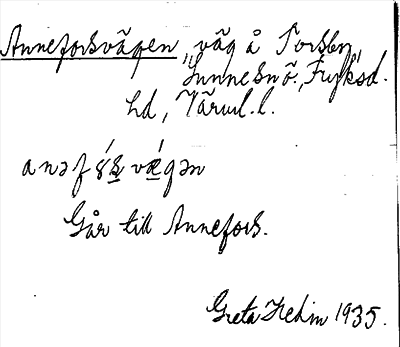 Anneforsvägen, väg å Torsby,
Sunnesnö., Fryksd.
hd, Värml. l.
anəf vægən
Går till Annefors.
Greta Hedin 1935.